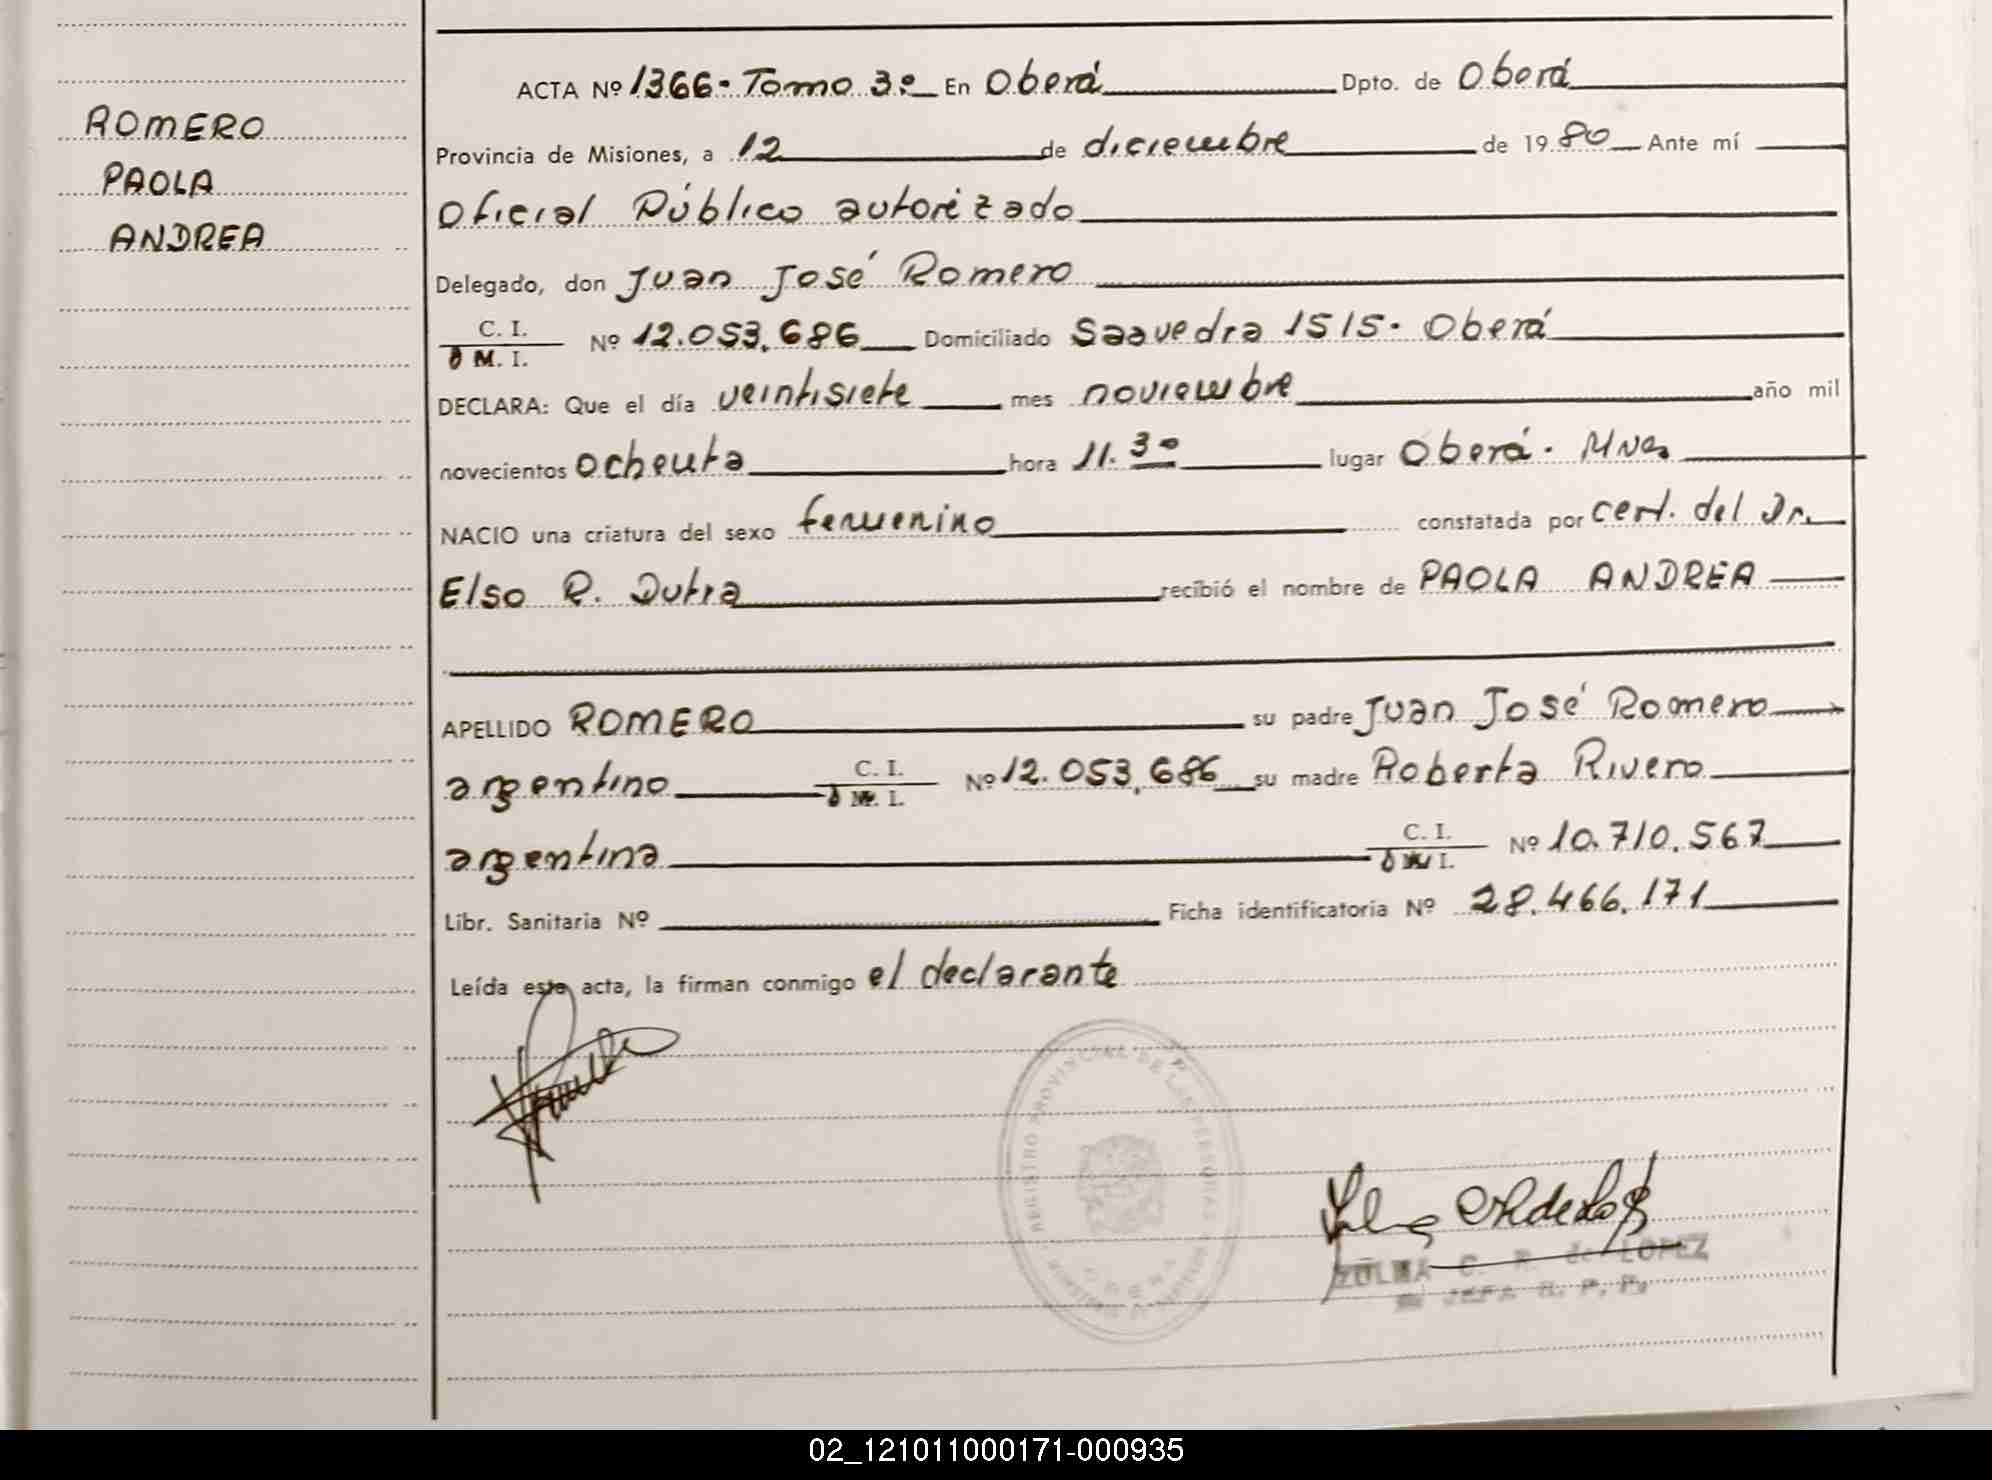 ROMERO
PAOLA
ANDREA
ACTA Nº 1366 - Tomo 3º En Oberá Dpto. de Oberá
Provincia de Misiones, a 12 de diciembre de 1980 Ante mí
Oficial Público autorizado
Delegado, don Juan José Romero
C. I.
M. I.
Nº 12.053.686 Domiciliado Saavedra 1515 - Oberá
DECLARA: Que el día veintisiete mes noviembre año mil
novecientos ochenta hora 11.30 lugar Oberá - Mnes
NACIO una criatura del sexo femenino constatada por cert. del Dr.
Elso R. Dutra recibió el nombre de PAOLA ANDREA
APELLIDO ROMERO su padre Juan José Romero
argentino C. I. M. I. Nº 12.053.686 su madre Roberta Rivero
argentina C. I. M. I. Nº 10.710.567
Libr. Sanitaria Nº Ficha identificatoria Nº 28.466.171
Leída este acta, la firman conmigo el declarante
REGISTRO PROVINCIAL DE LAS PERSONAS
ZULMA C. R. de LOPEZ
JEFA R. P. P.
02_121011000171-000935